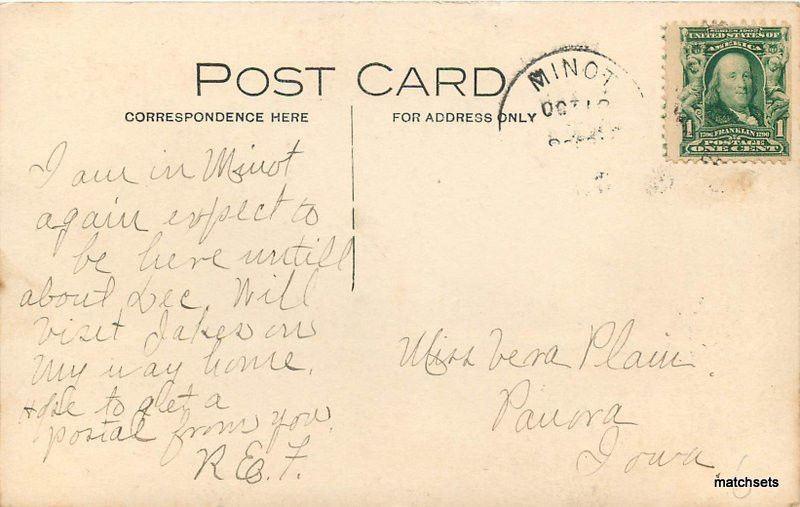 POST CARD
CORRESPONDENCE HERE
FOR ADDRESS ONLY
MINOT
OCT
SERIES 1902
UNITED STATES OF
AMERICA
1
1
1706 FRANKLIN 1790
POSTAGE
ONE CENT
I am in Minot
again expect to
be here untill
about Dec. Will
visit Jakes on
my way home.
Hope to get a
postal from you
R.E.F.
Miss Vera Plain.
Panora
Iowa.
matchsets